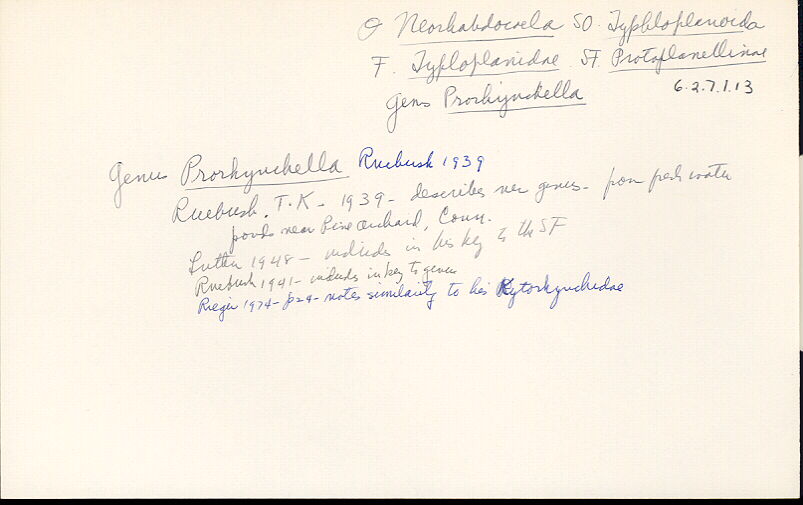 O Neorhabdocoela SO. Typhloplanoida
F. Typloplanidae SF. Protoplanellinae
Genus Prorhynchella 6.2.7.1.13
Genus Prorhynchella Ruebush 1939
Ruebush, T.K. - 1939 - describes new genus - from fresh water
ponds near Pine Orchard, Conn.
Luther 1948 - includes in his key to the SF
Ruebush 1941 - includes in key to genera
Rieger 1974 - p24 - notes similarity to his Kytorhynchidae